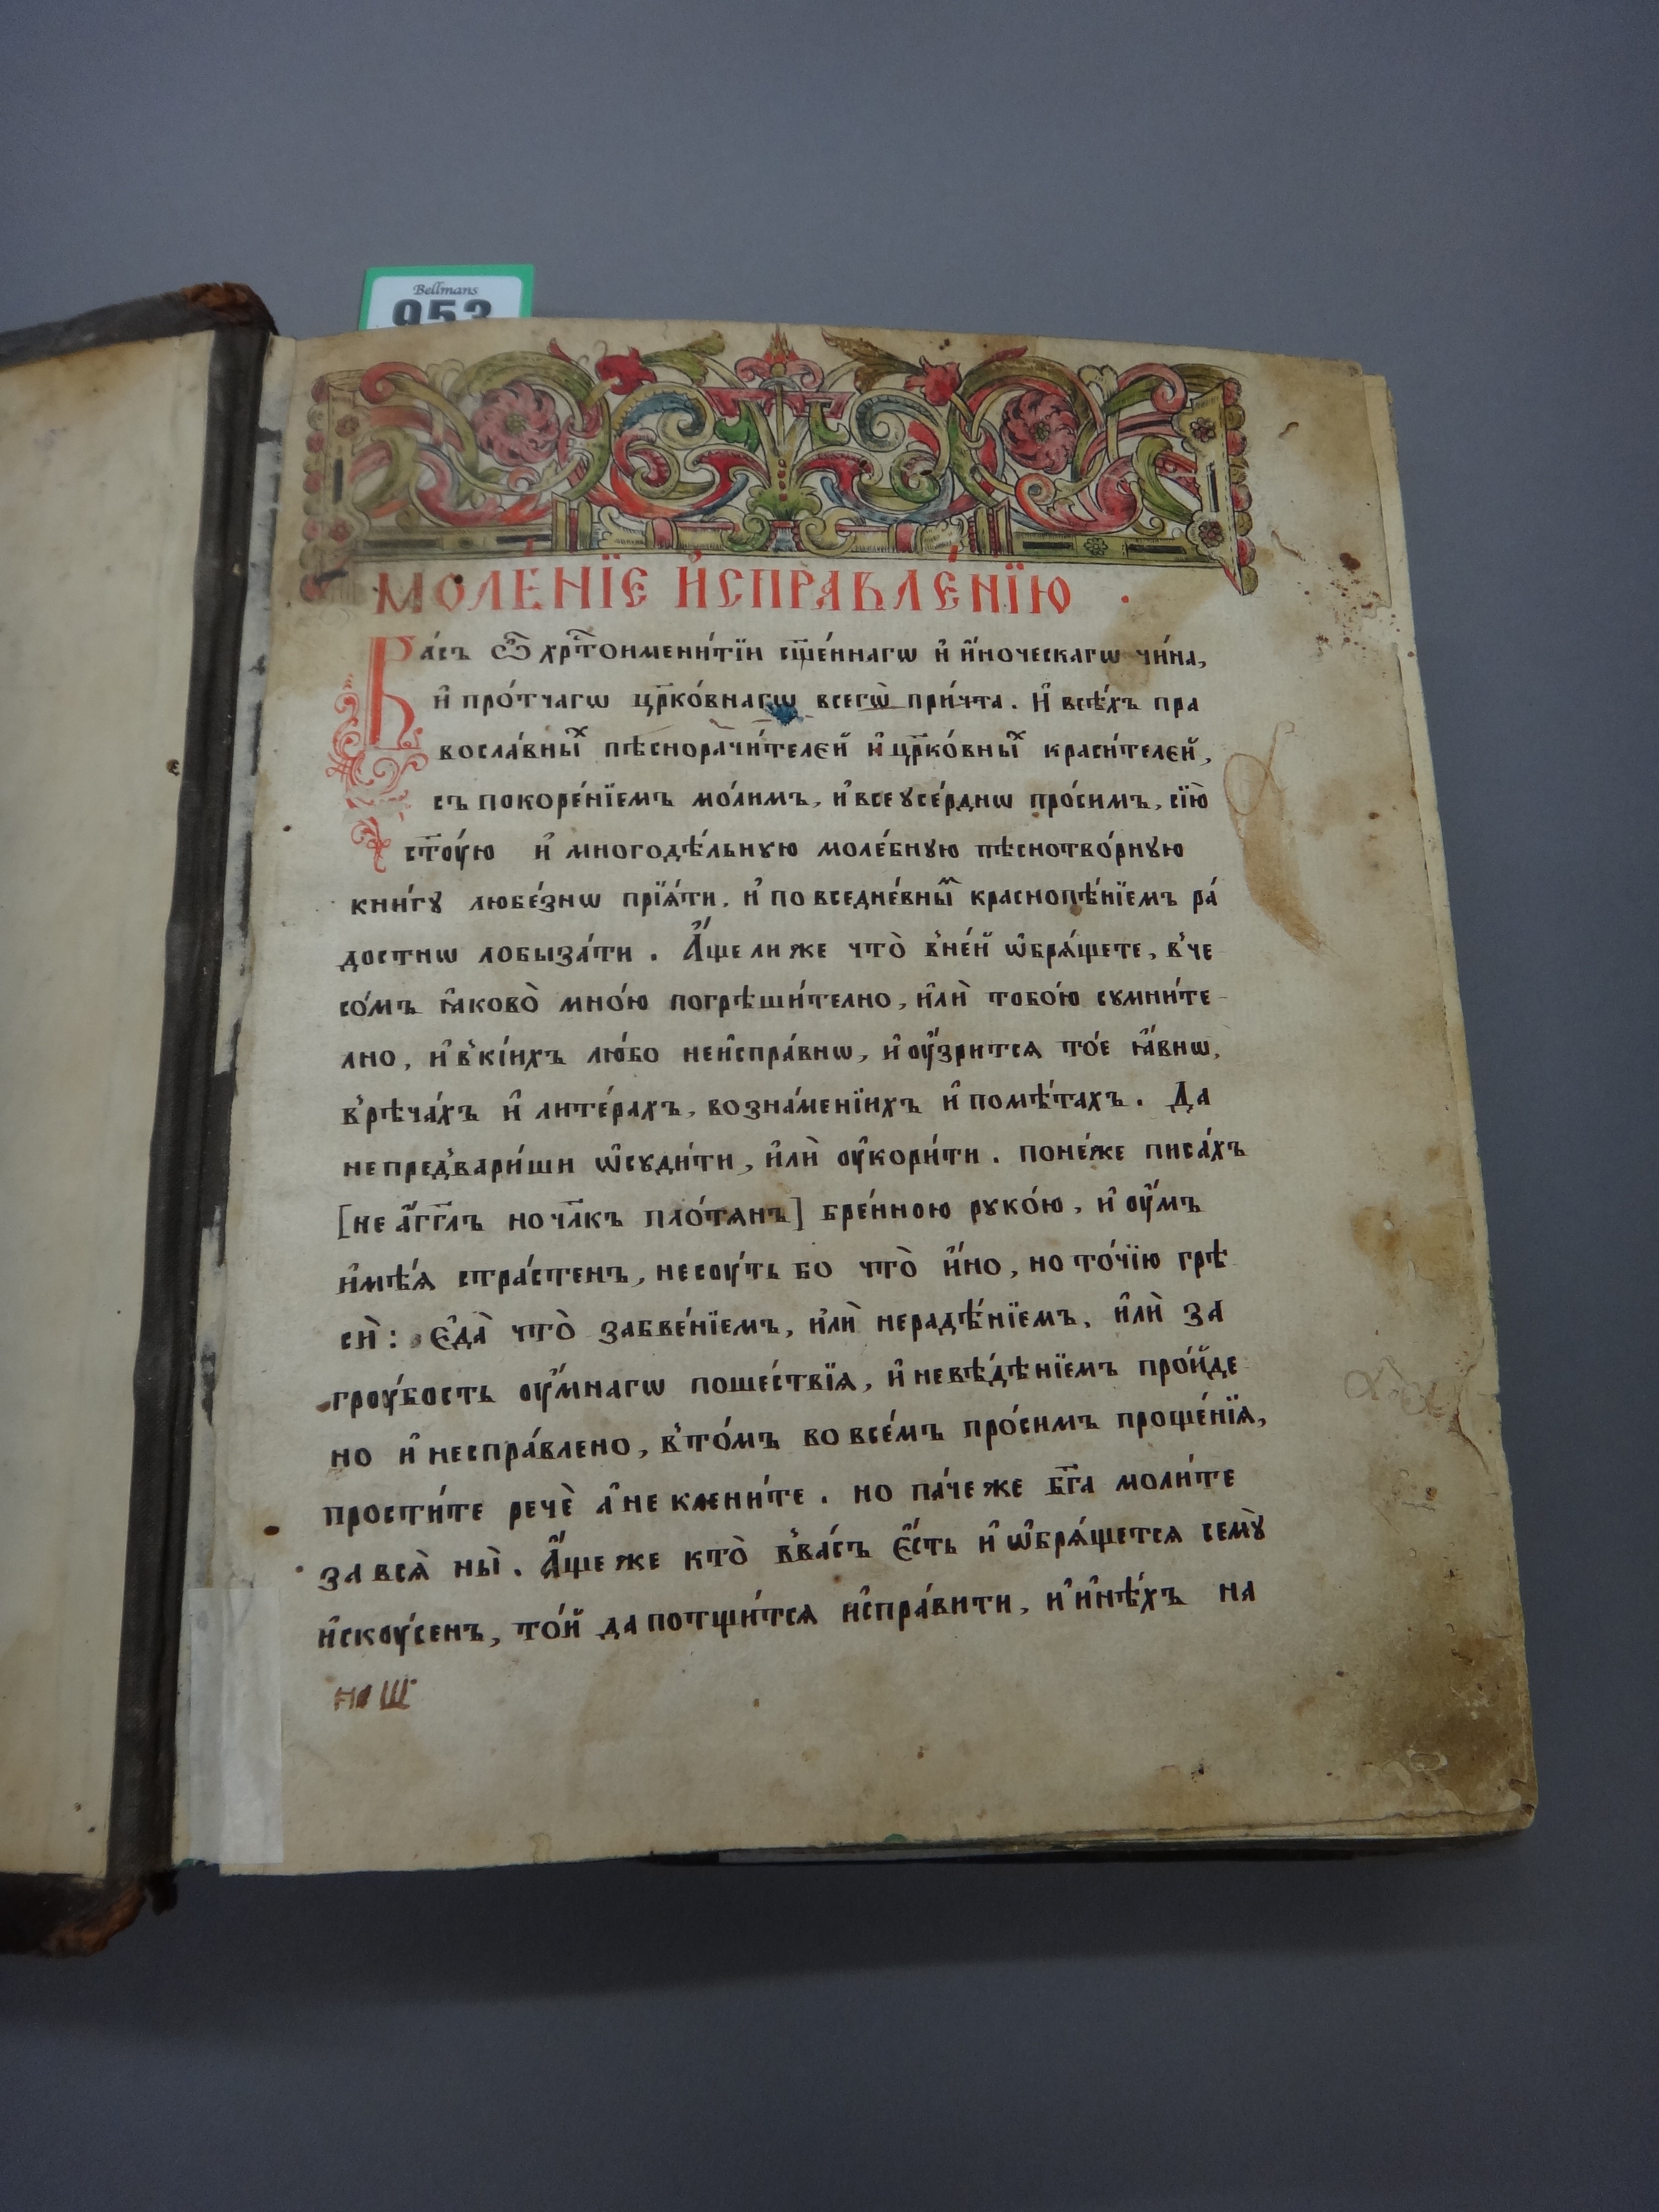 Bellmans
953
МОЛЕ́НЇЕ И҆СПРАВЛЕ́НЇЮ .
Ва́съ ѿ хрⷭ҇тоимени́тїи сщ҃е́ннагѡ и҆ и҆́ноческагѡ чи́на,
и҆ про́тчагѡ цр҃ко́внагѡ всегѡ̀ при́чта. И҆ всѣ́хъ пра
восла́вныⷯ пѣснорачи́телєй и҆ цр҃ко́вныⷯ краси́телєй,
съ покоре́нїемъ мо́лимъ, и҆ всеꙋсе́рднѡ про́симъ, сїю̀
ст҃ꙋ́ю и҆ многодѣ́льнꙋю моле́бнꙋю пѣснотво́рнꙋю
кни́гꙋ любе́знѡ прїѧ́ти, и҆ по вседне́вныⷨ краснопѣ́нїемъ ра́
достнѡ лобыза́ти . А҆́ще ли же что̀ в̾не́й ѡ҆брѧ́щете, в̾че
со́мъ ꙗ҆ково̀ мно́ю погрѣши́телно, и҆лѝ тобо́ю сꙋмни́те-
лно, и҆ в̾кі́ихъ лю́бо неи҆спра́внѡ, и҆ ᲂу҆́зритсѧ то́е ꙗ҆́внѡ,
в̾рѣча́хъ и҆ лите́рахъ, во зна́менїихъ и҆ помѣ́тахъ . Да
не пред̾вари́ши ѡ҆сꙋди́ти, и҆лѝ ᲂу҆кори́ти . поне́же писа́хъ
[не а҆́гг҃лъ но чл҃къ пло́тѧнъ] бре́нною рꙋко́ю, и҆ ᲂу҆́мъ
и҆мѣ́ѧ стра́стенъ, не сᲂу́ть бо что̀ и҆́но, но то́чїю грѣ
сѝ : Є҆да̀ что̀ забве́нїемъ, и҆лѝ нерадѣ́нїемъ, и҆лѝ за
грᲂу́бость ᲂу҆́мнагѡ поше́ствїѧ, и҆ невѣ́дѣнїемъ про́йде
но и҆ неспра́влено, в̾то́мъ во все́мъ про́симъ проще́нїѧ,
прости́те речѐ а҆ не клени́те . но па́че же бг҃а моли́те
за всѧ̀ ны̀ . А҆́ще же кто̀ в̾ва́съ є҆́сть и҆ ѡ҆брѧ́щетсѧ семꙋ̀
и҆скᲂу́сенъ, то́й да потщи́тсѧ и҆спра́вити, и҆ и҆нѣ́хъ на
на Ш